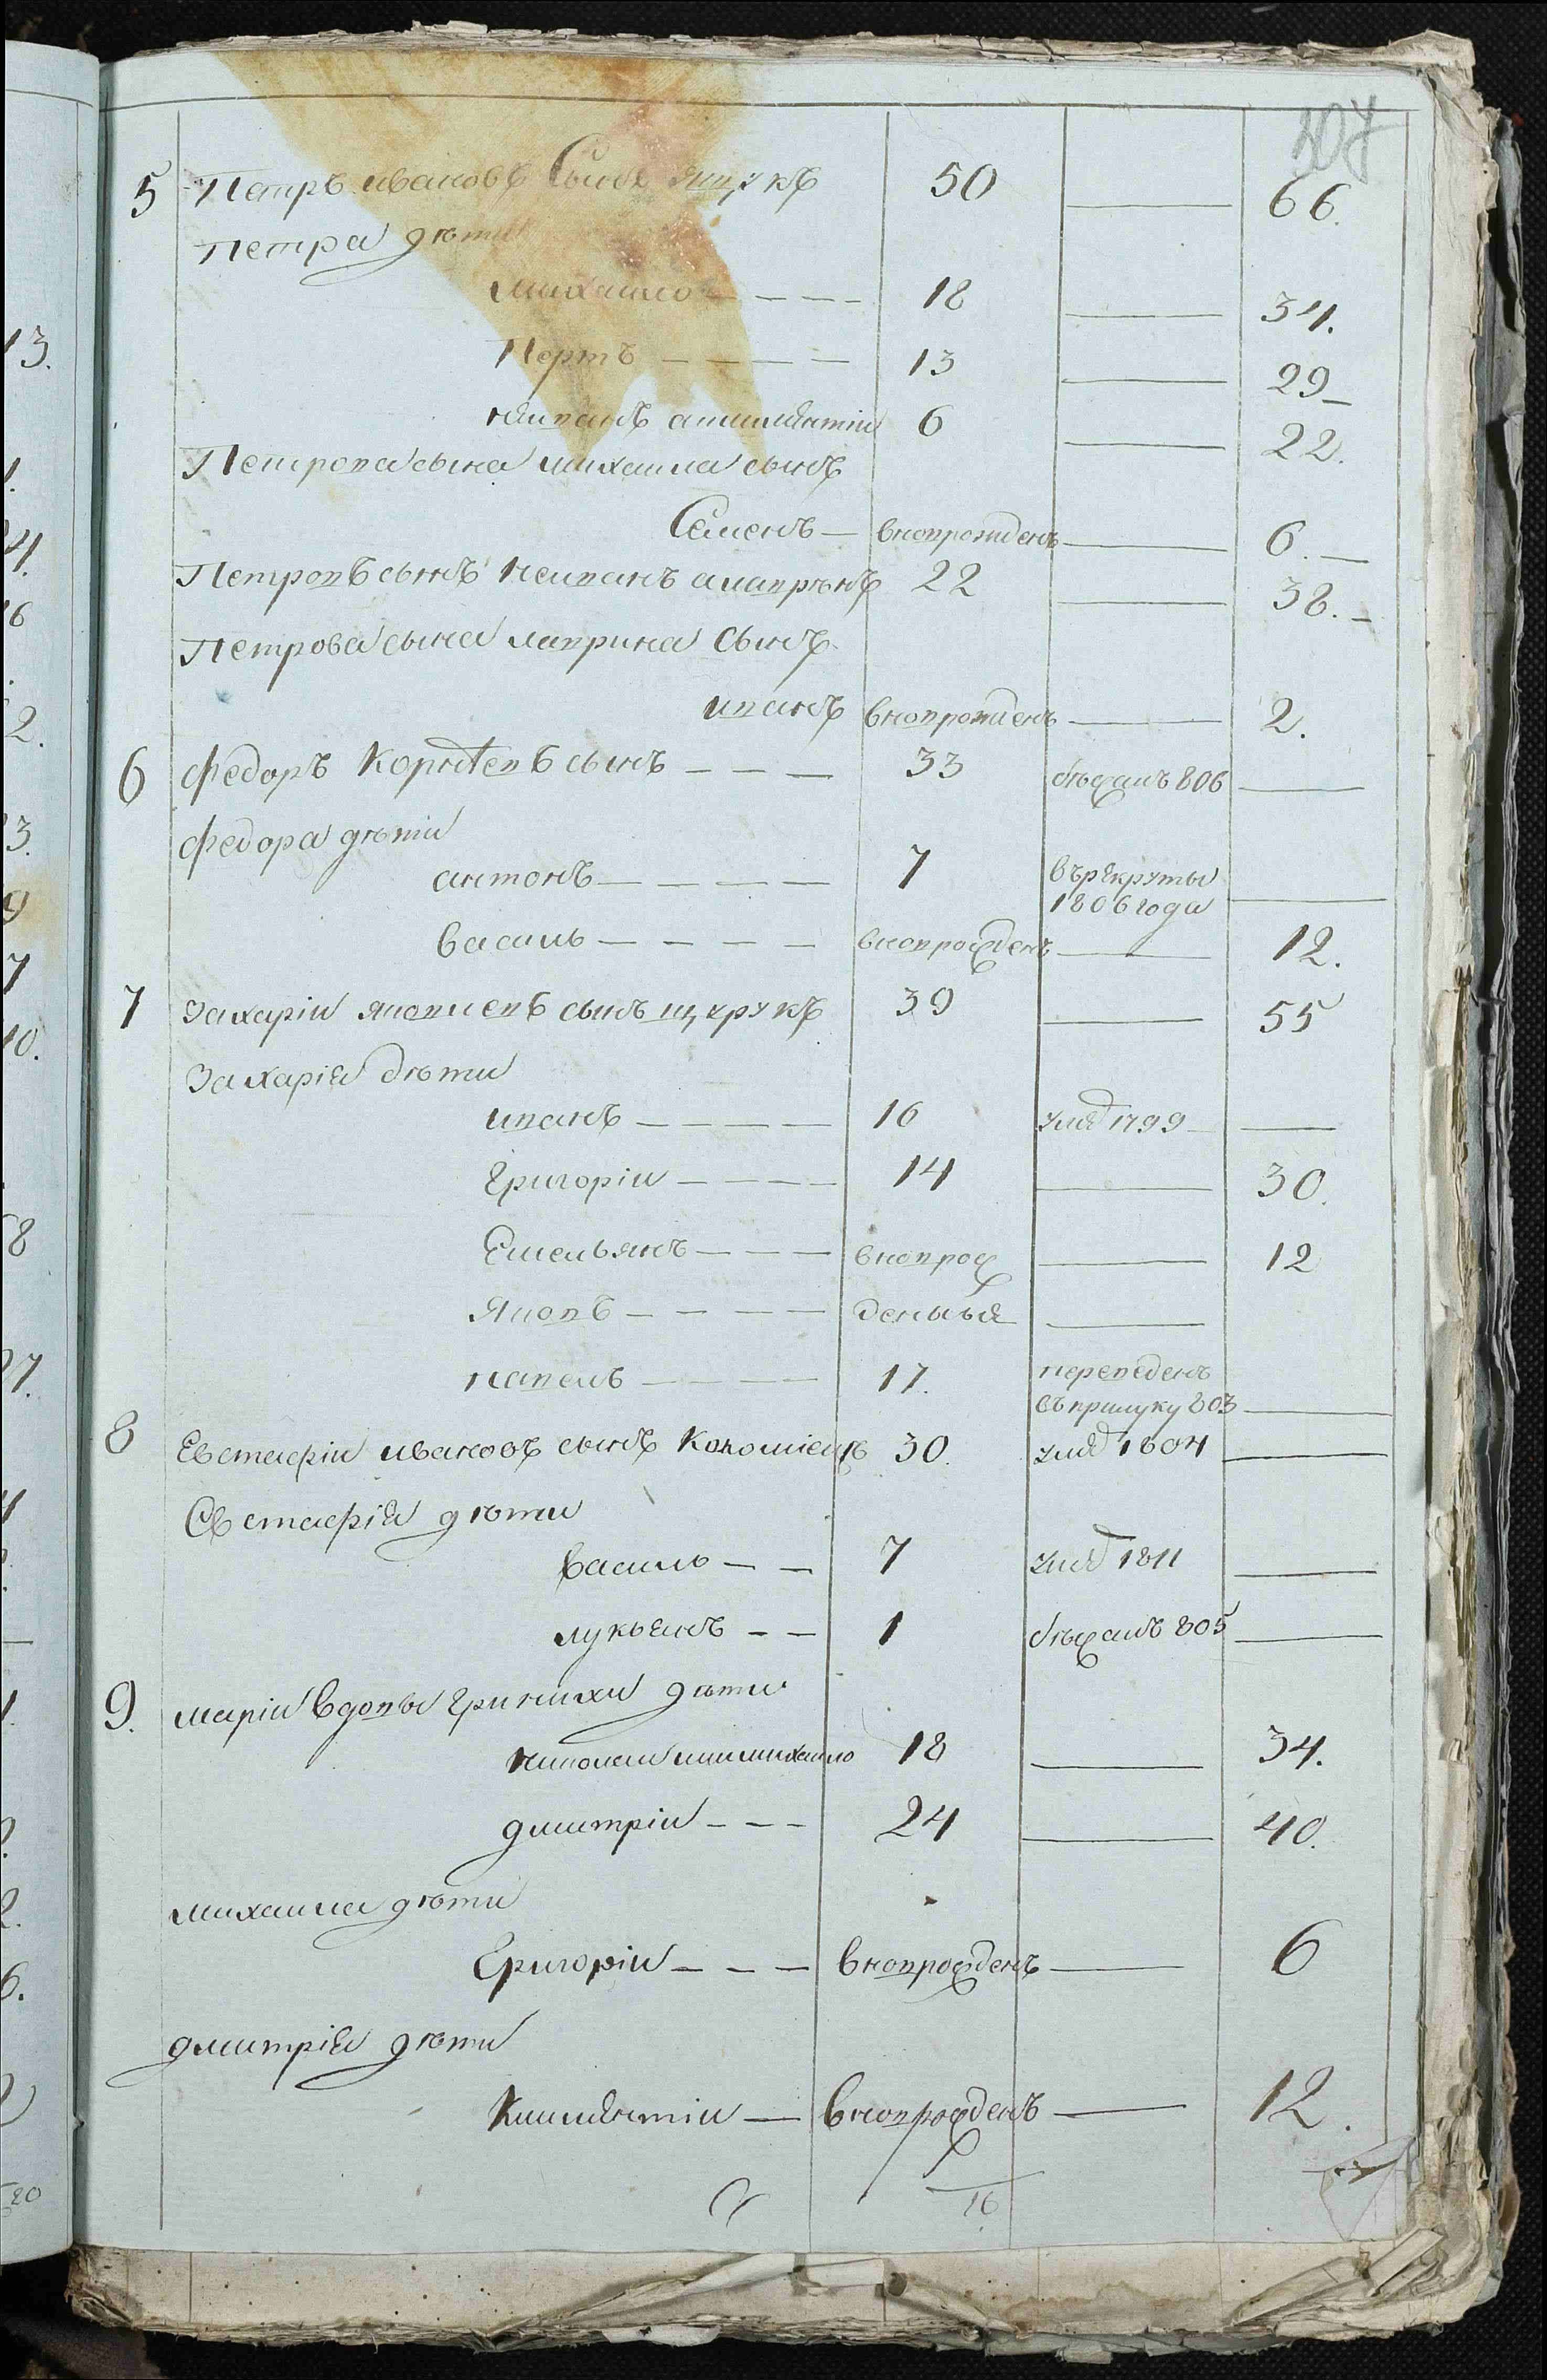 107
5 Петръ ивановъ Сынъ ящукъ 50 — 66.
Петра дѣти
михаило — — — 18 — 34.
Петръ — — — — 13 — 29
6 — 22.
Петрова сына михаила сынъ
Семенъ — вновврожденъ — 6.
Петровъ сынъ 22 — 38.
Петрова сына лаврина Сынъ
иванъ вноврожденъ — 2.
6 Федоръ Корнѣевъ сынъ — — — 33 бѣжалъ 806 —
Федора дѣти
антонъ — — — — 7 въ рекруты
1806 года —
василь — — — — вноврожденъ — 12.
7 Захарій яковлевъ сынъ щурукъ 39 — 55
Захарія дѣти
иванъ — — — — 16 умре 1799 —
Григорій — — — — 14 — 30.
Емельянъ — — — вноврож — 12
Яковъ — — — — денныя —
павелъ — — — — 17. переведенъ
въ прилуку 803 —
8 Евстафій ивановъ сынъ Коломіецъ 30. умре 1804 —
Евстафія дѣти
Василь — — 7 умре 1811 —
лукьянъ — — 1 бѣжалъ 805 —
9. маріи вдовы Гринихи дѣти
николай или михаило 18 — 34.
дмитрій — — — 24 — 40.
михаила дѣти
Григорій — — — вноврожденъ — 6
дмитрія дѣти
Климентій — вноврожденъ — 12.
16